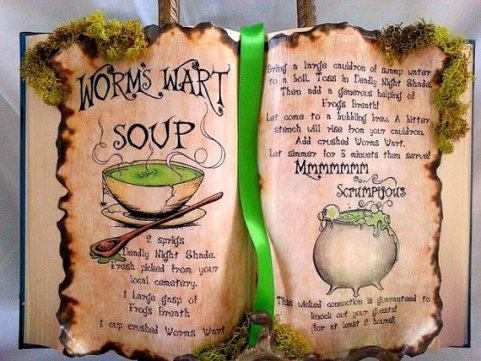 WORMS WART
SOUP
2 sprigs
Deadly Night Shade.
Fresh picked from your
local cemetery.
1 Large gasp of
Frogs Breath
1 cup crushed Worms Wart
Bring a large cauldron of swamp water
to a boil. Toss in Deadly Night Shade.
Then add a generous helping of
Frogs Breath!
Let come to a bubbling brew. A bitter
stench will rise from your cauldron.
Add crushed Worms Wart.
Let simmer for 5 minuets then serve!
Mmmmmmm
Scrumptious
This wicked concoction is guaranteed to
knock out your guests!
(for at least 2 hours)